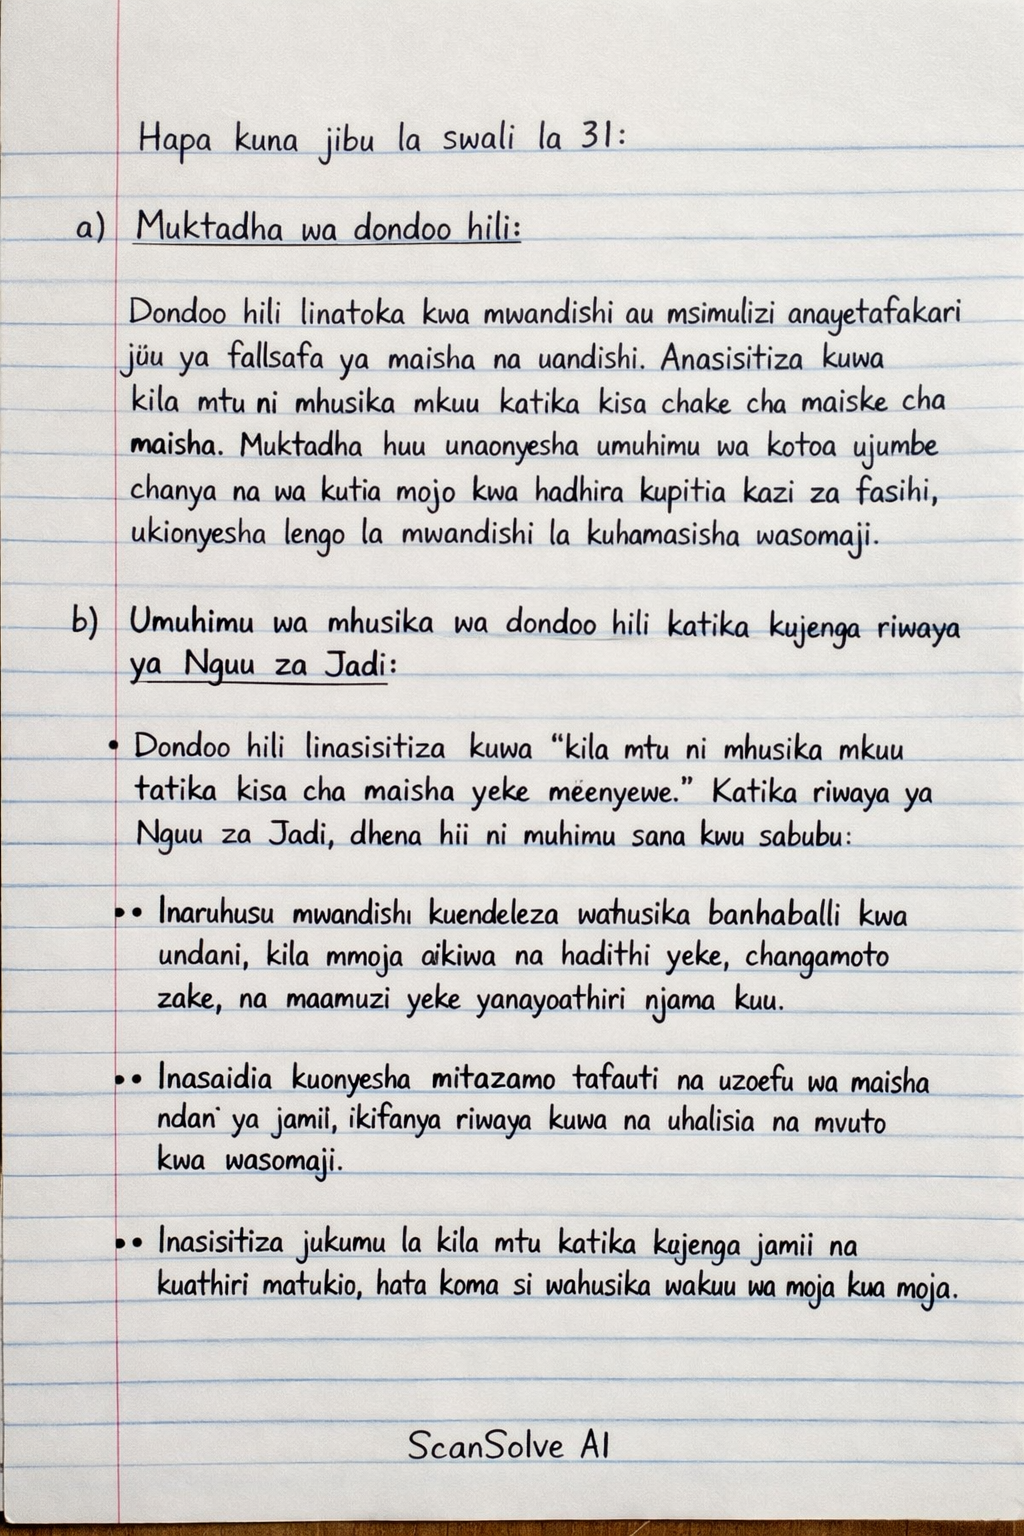 Hapa kuna jibu la swali la 31:
a) Muktadha wa dondoo hili:
Dondoo hili linatoka kwa mwandishi au msimulizi anayetafakari
jüu ya fallsafa ya maisha na uandishi. Anasisitiza kuwa
kila mtu ni mhusika mkuu katika kisa chake cha maiske cha
maisha. Muktadha huu unaonyesha umuhimu wa kotoa ujumbe
chanya na wa kutia mojo kwa hadhira kupitia kazi za fasihi,
ukionyesha lengo la mwandishi la kuhamasisha wasomaji.
b) Umuhimu wa mhusika wa dondoo hili katika kujenga riwaya
ya Nguu za Jadi:
• Dondoo hili linasisitiza kuwa “kila mtu ni mhusika mkuu
tatika kisa cha maisha yeke mëenyewe.” Katika riwaya ya
Nguu za Jadi, dhena hii ni muhimu sana kwu sabubu:
•• Inaruhusu mwandishı kuendeleza wahusika banhaballi kwa
undani, kila mmoja aikiwa na hadithi yeke, changamoto
zake, na maamuzi yeke yanayoathiri njama kuu.
•• Inasaidia kuonyesha mitazamo tafauti na uzoefu wa maisha
ndani ya jamii, ikifanya riwaya kuwa na uhalisia na mvuto
kwa wasomaji.
•• Inasisitiza jukumu la kila mtu katika kujenga jamii na
kuathiri matukio, hata koma si wahusika wakuu wa moja kua moja.
ScanSolve AI